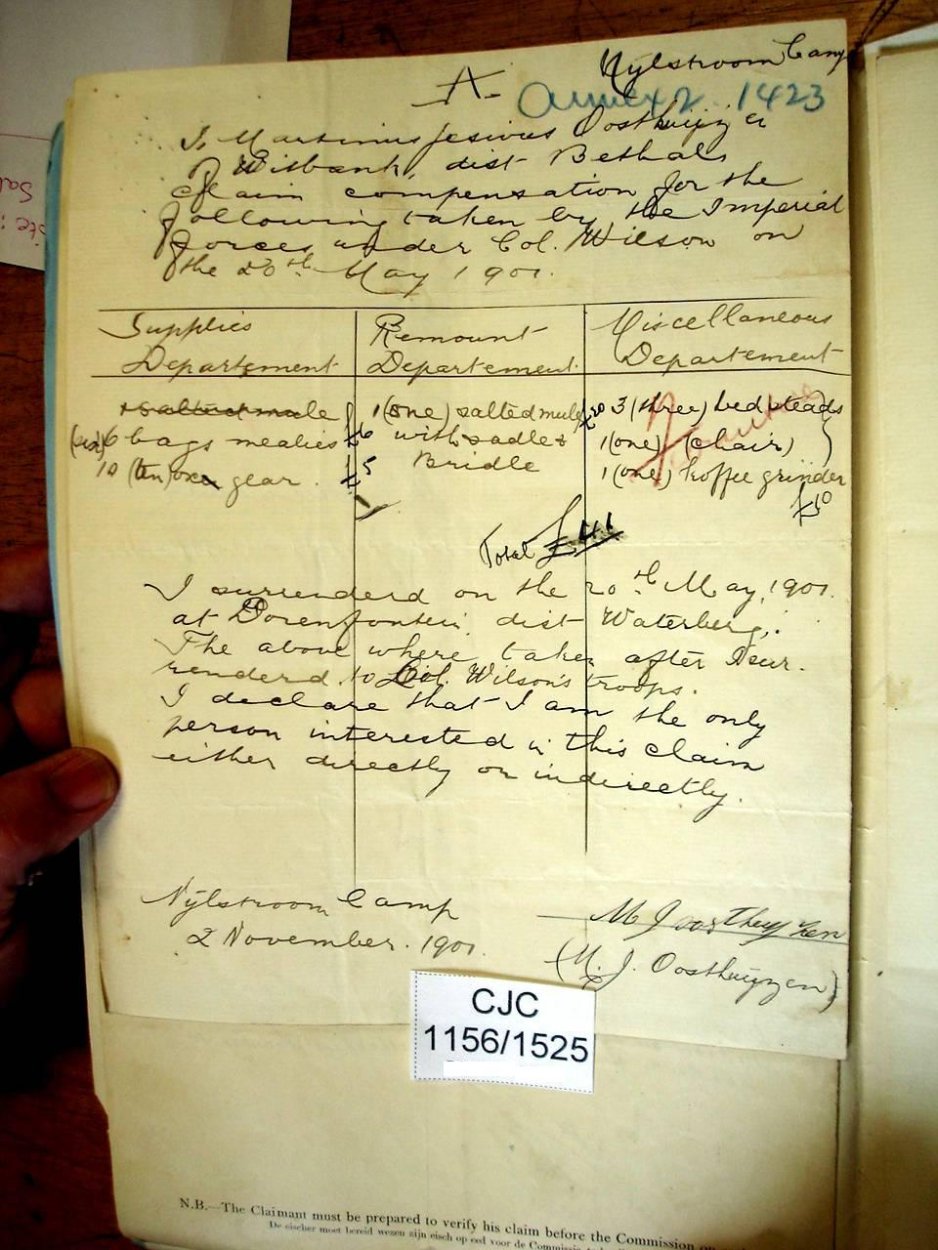 Nylstroom Camp
A.
Annex 2 1423
I, Martinus Jesivus Oosthuijzen
of Witbank, dist Bethals
claim compensation for the
following taken by the Imperial
forces under Col. Wilson on
the 20th May 1901.
Supplies Departement
Remount Departement
Miscellaneous Departement
1 salted mule
(six) 6 bags mealies £6
10 (ten) oxen gear. £5
1 (one) salted mule £20
with sadle &
Bridle
3 (three) bedsteads
1 (one) (chair)
1 (one) koffee grinder
£10
Total £41
I surrenderd on the 20th May, 1901.
at Dorenfontein dist Waterberg.
The above where taken after I sur-
renderd to Col. Wilson's troops.
I declare that I am the only
person interested in this claim
either directly or indirectly.
Nylstroom Camp
2 November. 1901.
M J Oosthuyzen
(M. J. Oosthuijzen)
CJC
1156/1525
N.B.—The Claimant must be prepared to verify his claim before the Commission on
De eischer moet bereid wezen zijn eisch op eed voor de Commissie